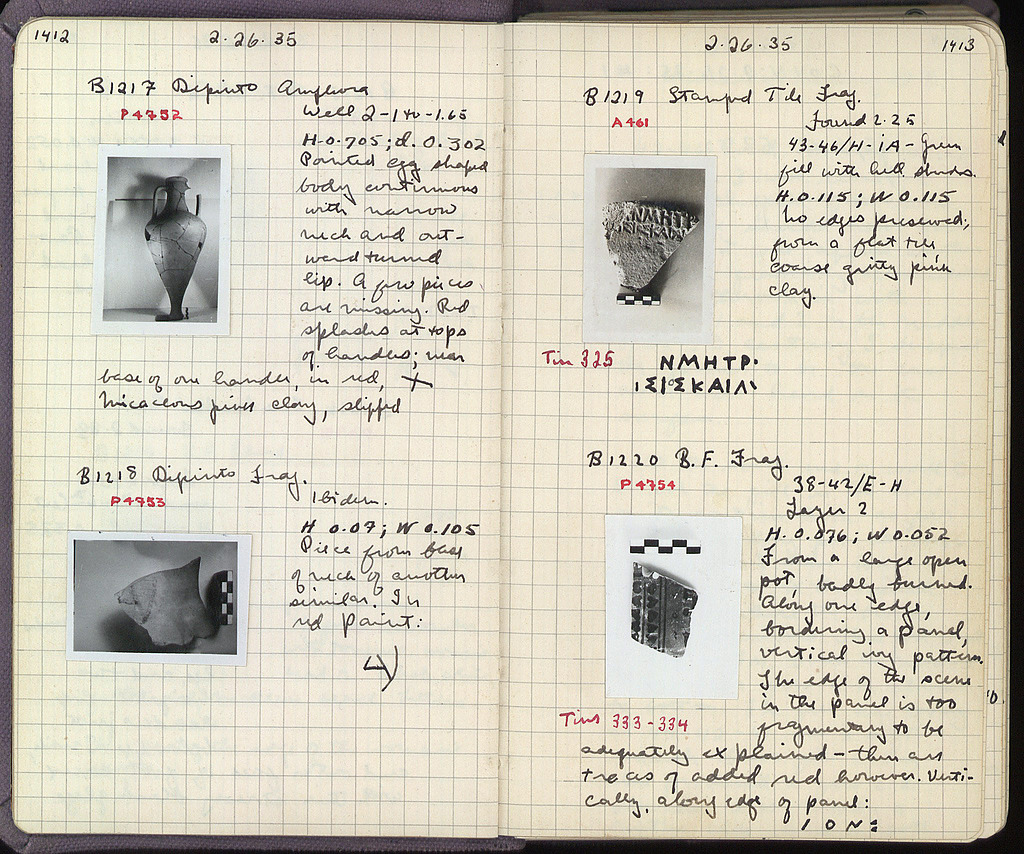 1412
2·26·35
B1217 Dipinto Amphora
P4752
Well 2-140-1.65
H-0.705; d. 0.302
Pointed egg shaped
body continuous
with narrow
neck and out-
ward turned
lip. A few pieces
are missing. Red
splashes at tops
of handles; near
base of one handle, in red,
Micaceous pink clay, slipped
B1218 Dipinto Frag.
P4753
Ibidem.
H 0.07; W 0.105
Piece from base
of neck of another
similar. In
red paint:
2·26·35
1413
B1219 Stamped Tile Frag.
A461
Found 2.25
43-46/H-IA- Green
fill with
H.0.115; W 0.115
No edges preserved;
from a flat tile
coarse gritty pink
clay.
Tin 325
ΝΜΗΤΡ·
ΙΣΙΟΣΚΑΙΛ
B1220 B.F. Frag.
P4754
38-42/E-H
Layer 2
H. 0.076; W 0.052
From a large open
pot, badly burned.
Along one edge,
bordering a panel,
vertical ivy pattern.
The edge of the scene
in the panel is too
fragmentary to be
Tins 333-334
adequately explained - there are
traces of added red however. Verti-
cally, along edge of panel:
ION: